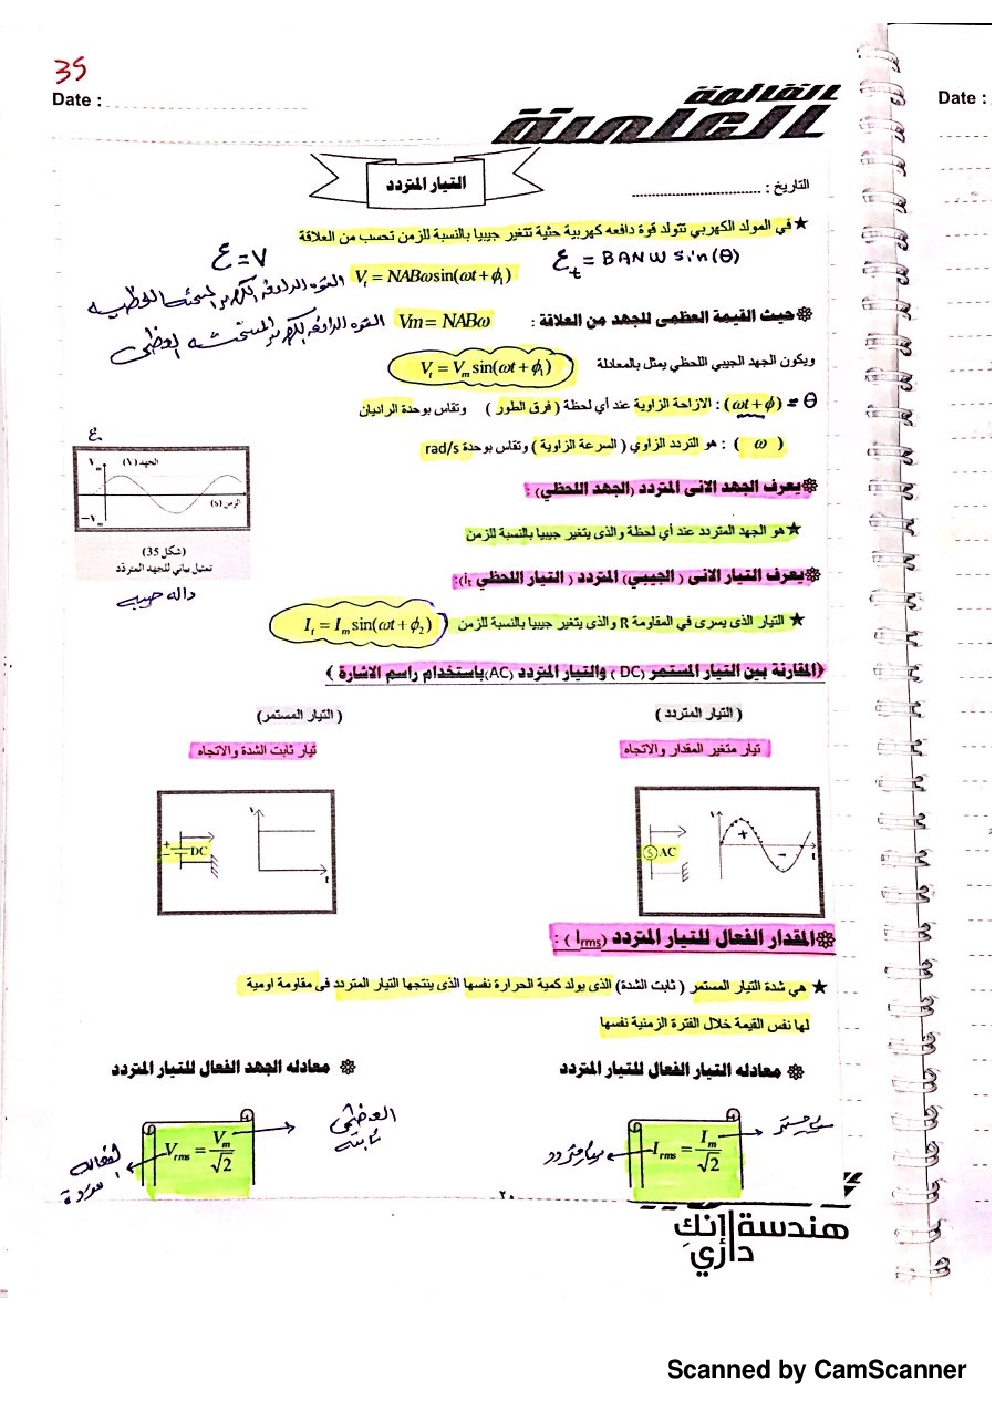 35
Date :
Date :
القائمة
العلمية
التيار المتردد
التاريخ :
★ في المولد الكهربي تتولد قوة دافعه كهربية حثية تتغير جيبيا بالنسبة للزمن تحسب من العلاقة
ε = V
εt = BANW sin(θ)
Vt = NABω sin(ωt + ϕ1)
القوه الدافعه الكهربيه المستحثه اللحظيه
حيث القيمة العظمى للجهد من العلاقة :
Vm = NABω
القوه الدافعه الكهربيه المستحثه العظمى
ويكون الجهد الجيبي اللحظي يمثل بالمعادلة
Vt = Vm sin(ωt + ϕ1)
θ = (ωt + ϕ) : الازاحة الزاوية عند أي لحظة ( فرق الطور ) وتقاس بوحدة الراديان
( ω ) : هو التردد الزاوي ( السرعة الزاوية ) وتقاس بوحدة rad/s
ع
الجهد (V)
الزمن (s)
(شكل 35)
تمثيل بياني للجهد المتردد
داله جيبيه
يعرف الجهد الانى المتردد (الجهد اللحظي) :
★ هو الجهد المتردد عند أي لحظة والذى يتغير جيبيا بالنسبة للزمن
يعرف التيار الانى ( الجيبي) المتردد ( التيار اللحظي It):
★ التيار الذى يسرى في المقاومة R والذي يتغير جيبيا بالنسبة للزمن
It = Im sin(ωt + ϕ2)
(المقارنة بين التيار المستمر (DC ) والتيار المتردد (AC)باستخدام راسم الاشارة )
( التيار المتردد )
( التيار المستمر)
تيار متغير المقدار والاتجاه
تيار ثابت الشدة والاتجاه
AC
I
+
-
t
+
-
DC
I
t
المقدار الفعال للتيار المتردد (Irms ) :
★ هي شدة التيار المستمر ( ثابت الشدة) الذى يولد كمية الحرارة نفسها الذى ينتجها التيار المتردد فى مقاومة اومية
لها نفس القيمة خلال الفترة الزمنية نفسها
معادله التيار الفعال للتيار المتردد
معادله الجهد الفعال للتيار المتردد
Irms = Im/√2
تيار متردد
Vrms = Vm/√2
العظمى
ثابته
٢٠
هندسة إنك
داري
Scanned by CamScanner